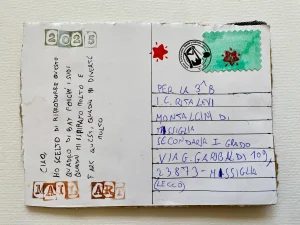 2025
CIAO,
HO SCELTO DI RIPRODURRE QUESTO
QUADRO DI BAY PERCHÉ I SUOI
QUADRI MI ISPIRANO MOLTO E
FARE QUESTI QUADRI MI DIVERTE
MOLTO
MAIL ART
PER LA 3^B
I.C. RITA LEVI
MONTALCINI DI
MISSAGLIA
SECONDARIA I GRADO
VIA G. GARIBALDI 109,
23873 - MISSAGLIA
(LECCO)